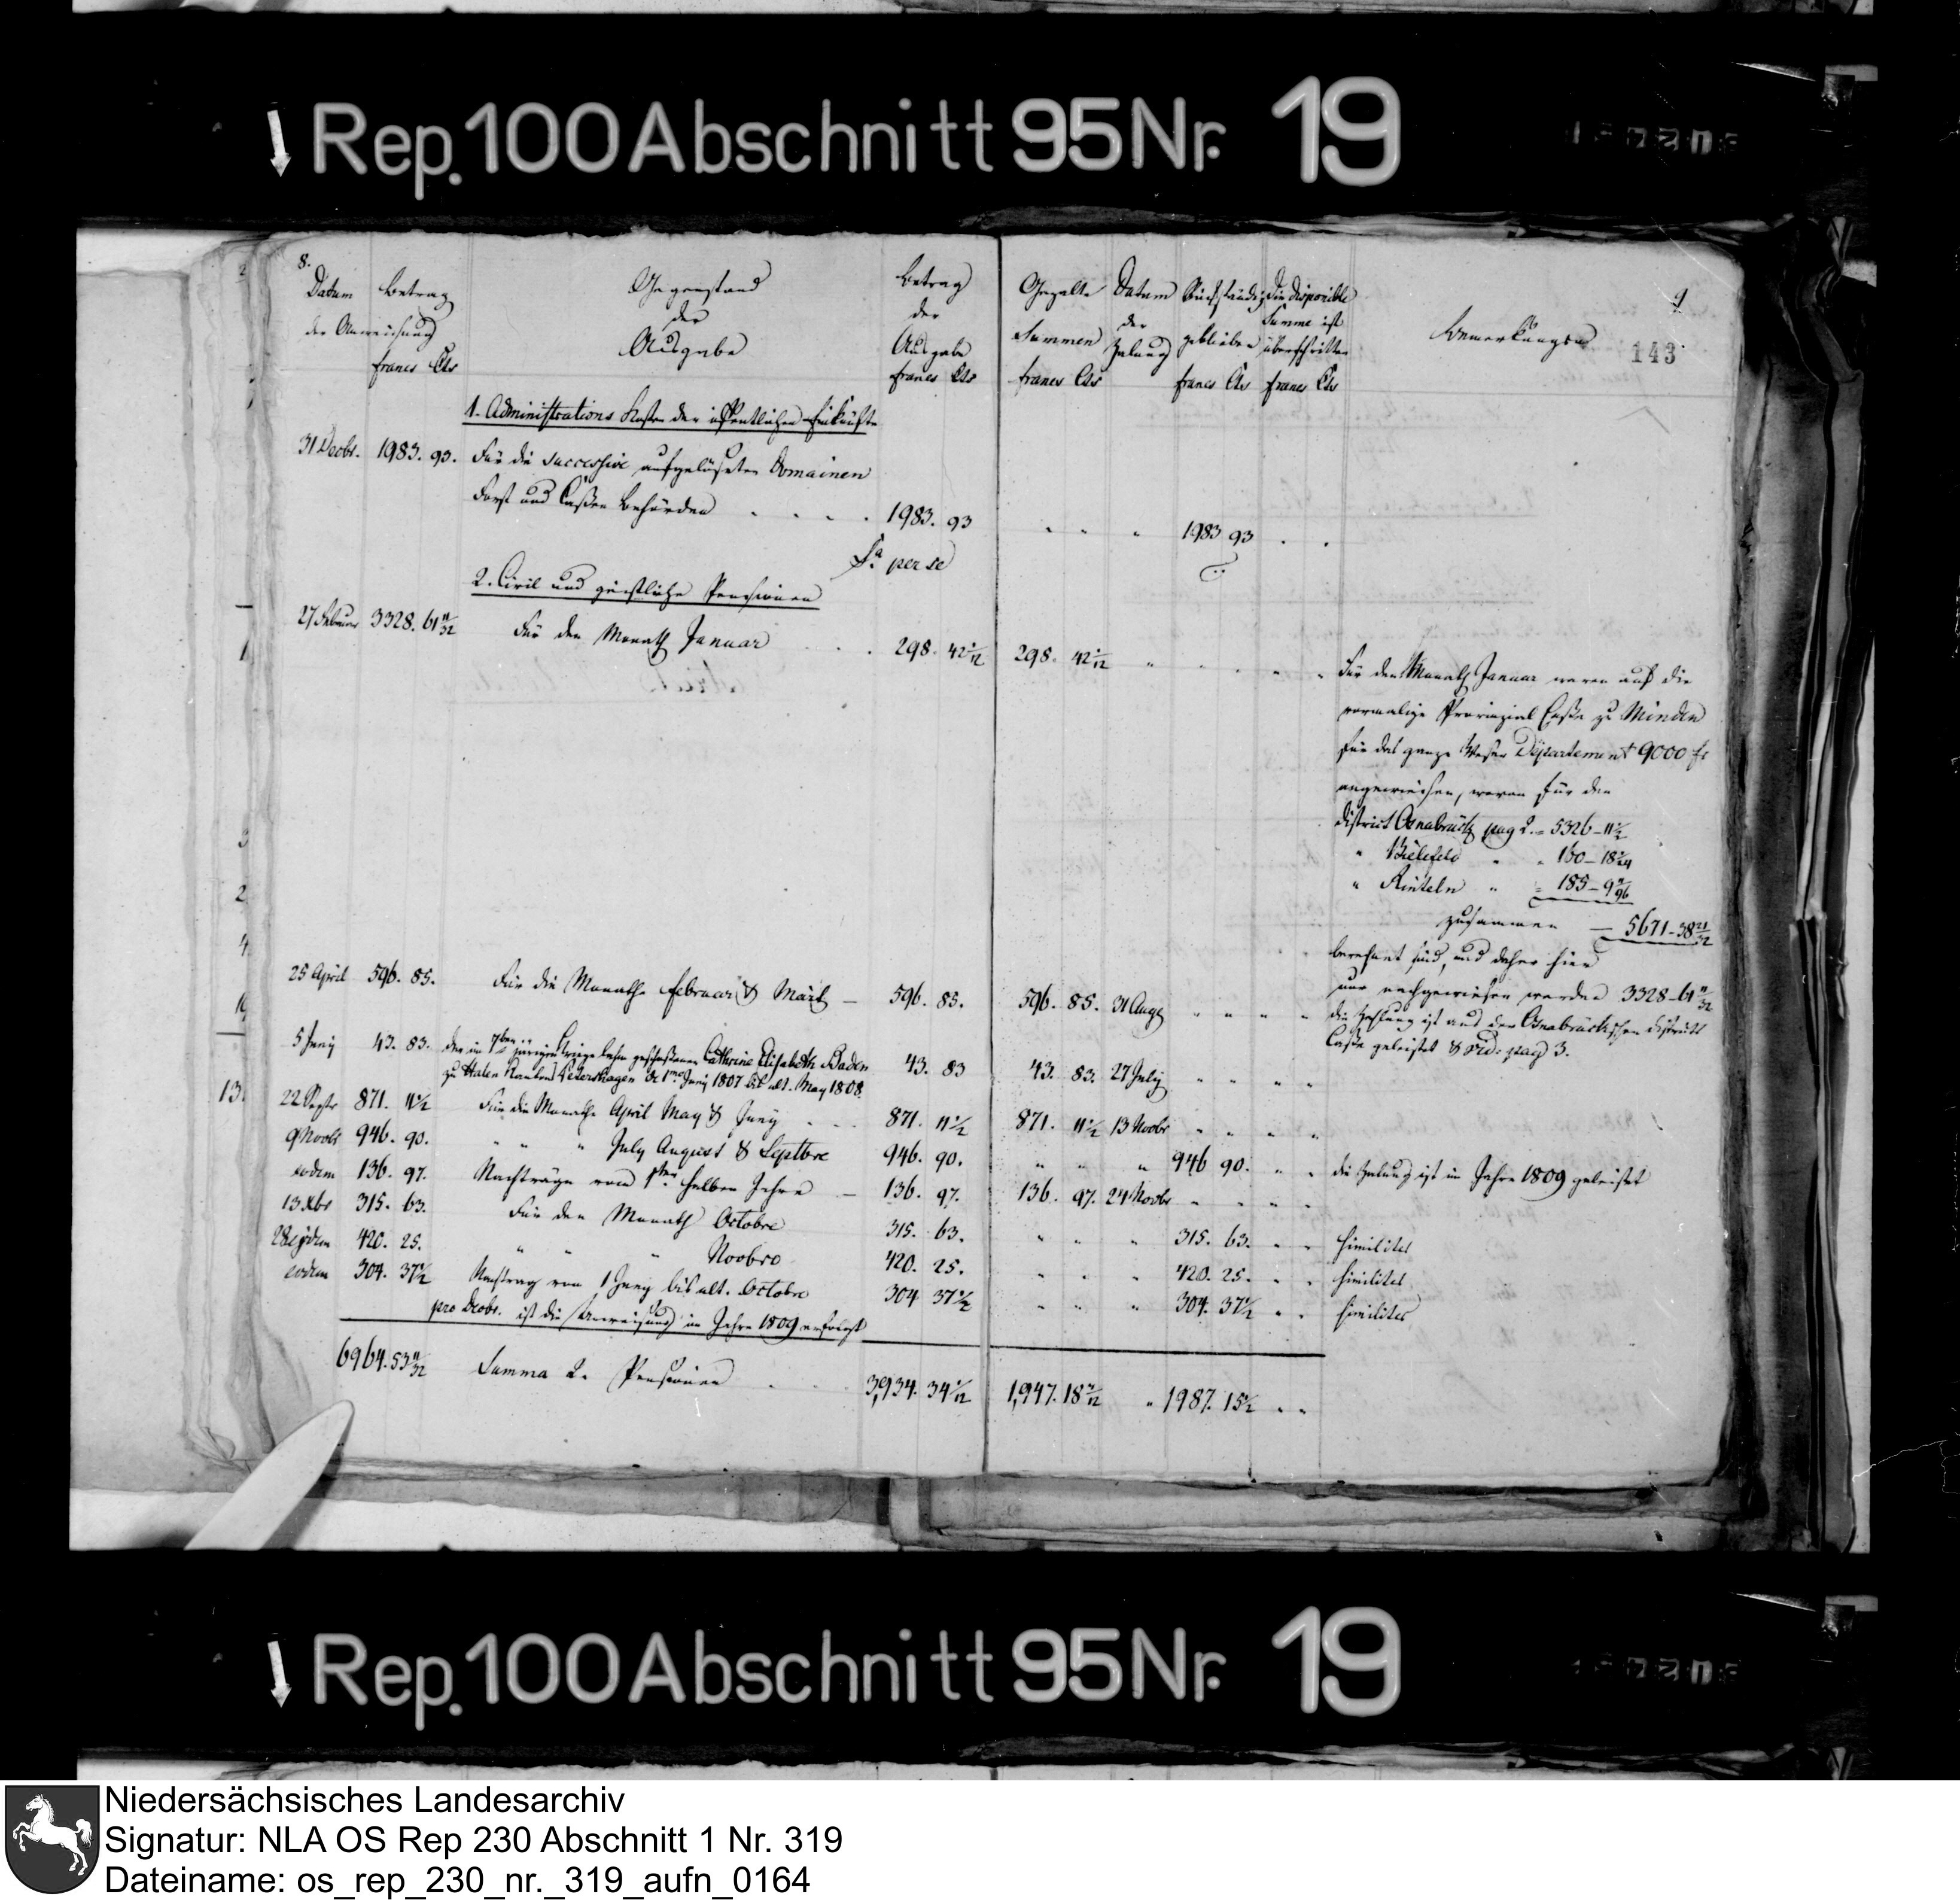 Rep. 100 Abschnitt 95 Nr. 19
8.
Datum Betrag
der Anweisung
francs Cts
Gegenstand
der
Ausgabe
Betrag
der
Ausgabe
francs Cts
Gezalte
Summen
francs Cts
Datum
der
Zalung
Rückständig
geblieben
francs Cts
Die disponible
Summe ist
überschritten
francs Cts
Bemerkungen
9
143
1. Administrations Kosten der öffentlichen Einkünfte
31 Decbr. 1983. 93. Für die successive aufgelöseten Domainen
Forst und Cassen Behörden . . . . 1983. 93 " " " 1983 93 . .
Sa. per se
2. Civil und geistliche Pensionen
27 Februar 3328. 61 11/32 Für den Monath Januar . . . 298. 42 1/12 298. 42 1/12 " " " " "
Für den Monath Januar waren auf die
vormalige Provinzial Casse zu Minden
für das ganze Weser Département 9000 fr
angewiesen, wovon für den
District Osnabrück pag 2. = 5326 – 11 1/2
" Bielefeld " " 160 – 18 /24
" Rinteln " = 185 – 9 /96
zusammen — 5671 – 38 21/32
berechnet sind, und daher hier
nur nachgewiesen werden 3328 – 61 11/32
25 April 596. 85. Für die Monathe Februar & Märtz — 596. 85. 596. 85. 31 Aug " " " "
die Zahlung ist aus der Osnabrückschen Districts
Casse geleistet & vid. pag 3.
5 Juny 43. 83. der im 7 jährigen Kriege lahm geschossenen Cathrine Elisabeth Baden 43. 83 43. 83. 27 July " " " "
zu Halen Kantons Petershagen de 1mo Juny 1807 bis ult. May 1808.
22 Septr 871. 11 1/2 Für die Monathe April May & Juny . . . 871. 11 1/2 871. 11 1/2 13 Novbr " " " "
9 Novbr 946. 90. " " " July August & Septbre 946. 90. " " " 946 90. " " die Zalung ist im Jahre 1809 geleistet
eodem 136. 97. Nachträge vom 1sten halben Jahre — 136. 97. 136. 97. 24 Novbr " " " "
13 Xbr 315. 63. Für den Monath Octobre 315. 63. " " " 315. 63. " " similiter
28 ejsdem 420. 25. " " " Novbre 420. 25. " " " 420. 25. " " similiter
eodem 304. 37 1/2 Nachtrag von 1 Juny bis ult. Octobre 304 37 1/2 " " " 304. 37 1/2 " " similiter
pro Decbr. ist die Anweisung im Jahre 1809 erfolgt
6964. 53 11/32 Summa 2. Pensionen . . . 3,934. 34 1/12 1,947. 18 7/12 " 1987. 15 1/2 " "
Rep. 100 Abschnitt 95 Nr. 19
Niedersächsisches Landesarchiv
Signatur: NLA OS Rep 230 Abschnitt 1 Nr. 319
Dateiname: os_rep_230_nr._319_aufn_0164